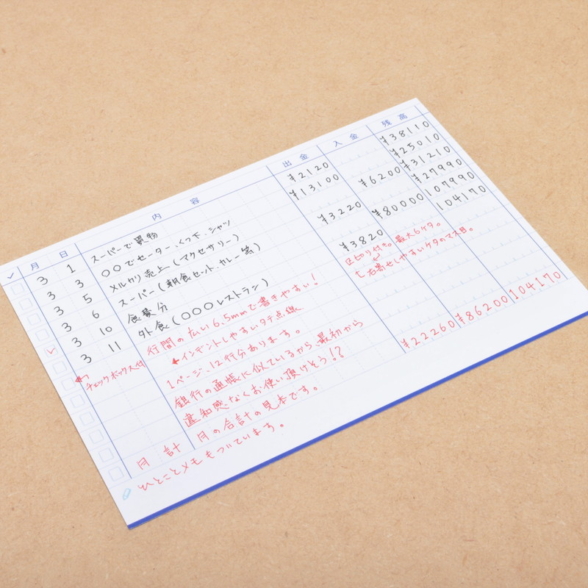 ✓ 月 日 内容 出金 入金 残高
3 1 スーパーで買物 ¥2120 ¥38110
3 3 〇〇でセーター、くつ下、シャツ ¥13100 ¥25010
3 5 メルカリ売上(アクセサリー) ¥6200 ¥31210
3 6 スーパー(朝食セット、カレー等) ¥3220 ¥27990
3 10 ¥80000 107990
3 11 外食(〇〇〇レストラン) ¥3820 104170
行間の広い6.5mmで書きやすい! 区切り付き。最大6ケタ。
チェックボックス付 ←インデントしやすいタテ点線 右詰めしやすいケタのマス目。
1ページ、12行分あります。
銀行の通帳に似ているから、最初から
違和感なくお使い頂けそう!?
月の合計の見本です。
月計 ¥22260 ¥86200 104170
ひとことメモもついています。